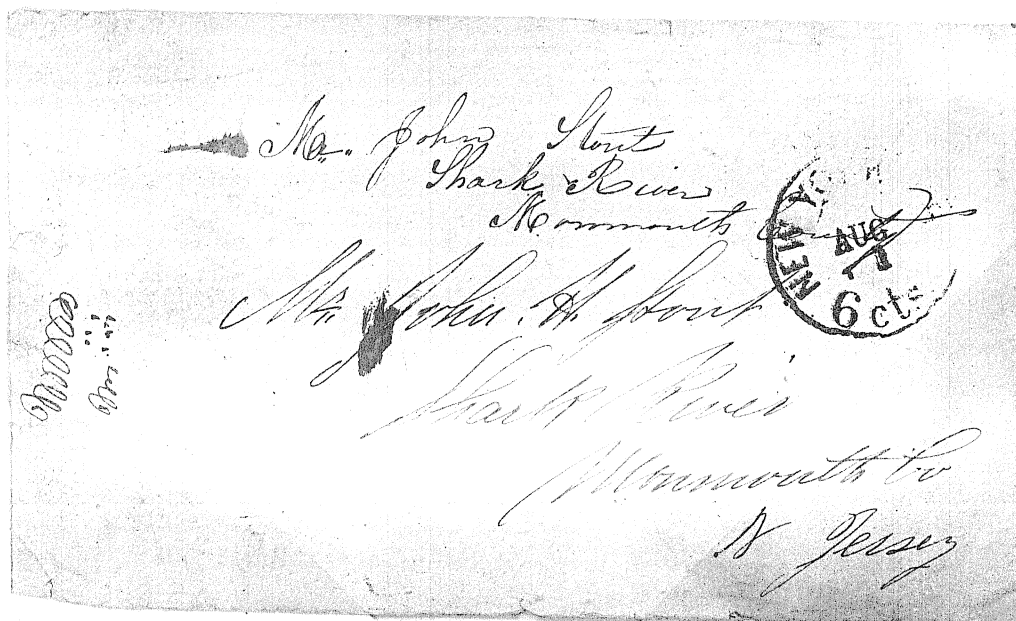 Mr. John Stout
Shark River
Monmouth County
NEW YORK
AUG
1
6 cts
Mr. John. H. Stout
Shark River
Monmouth Co
N Jersey